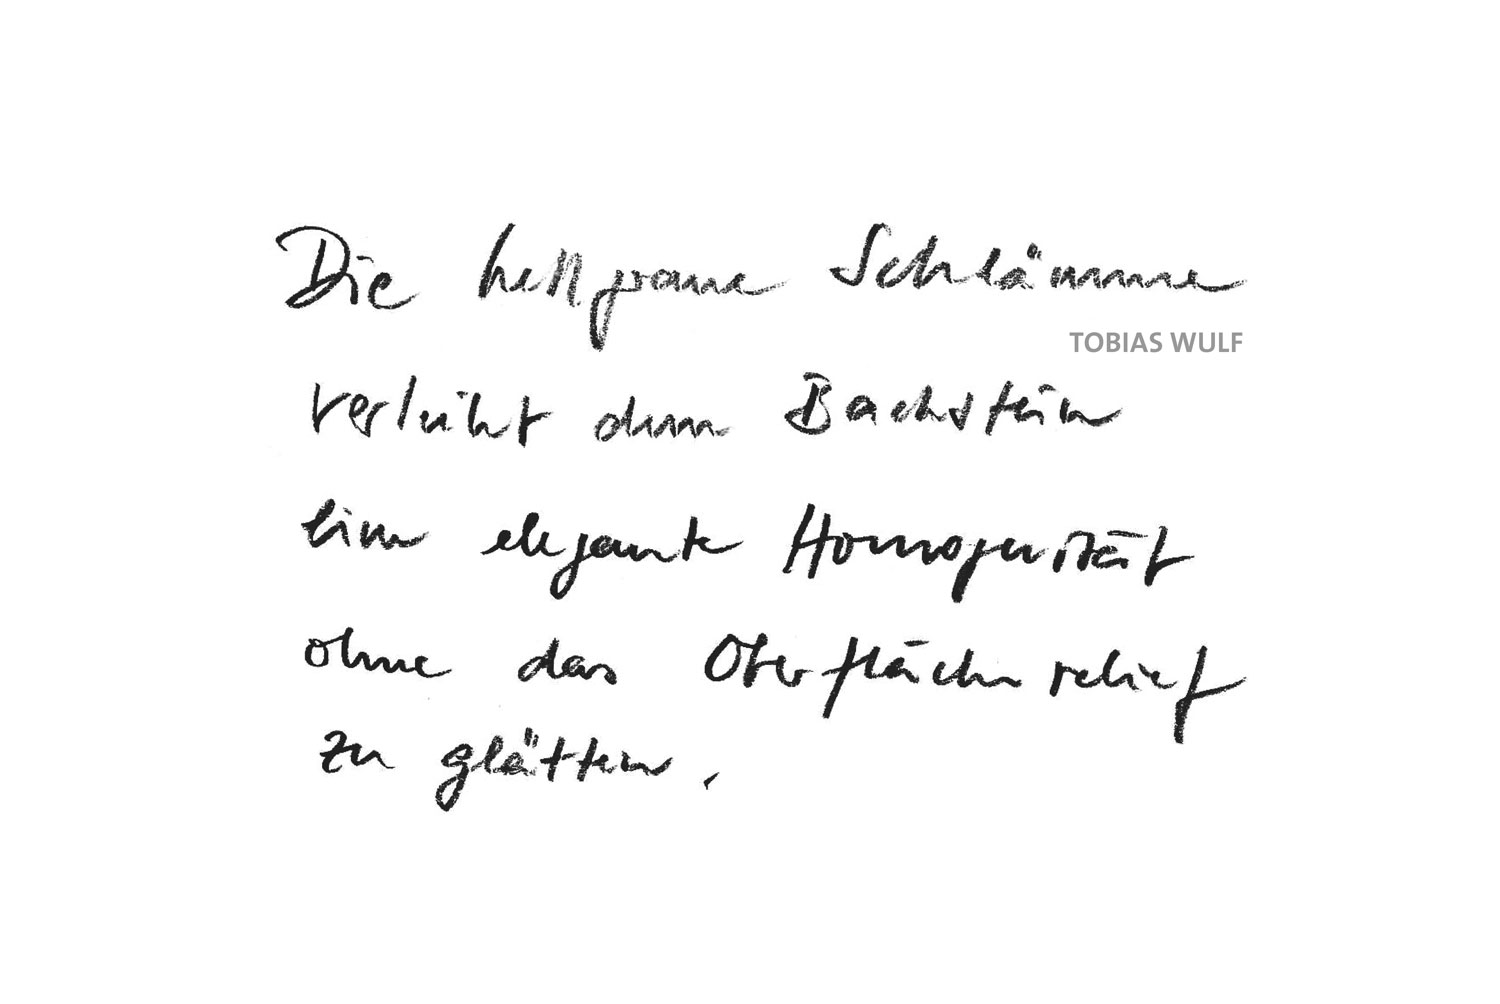 Die hellgraue Schlämme
TOBIAS WULF
verleiht dem Backstein
eine elegante Homogenität
ohne das Oberflächenrelief
zu glätten.